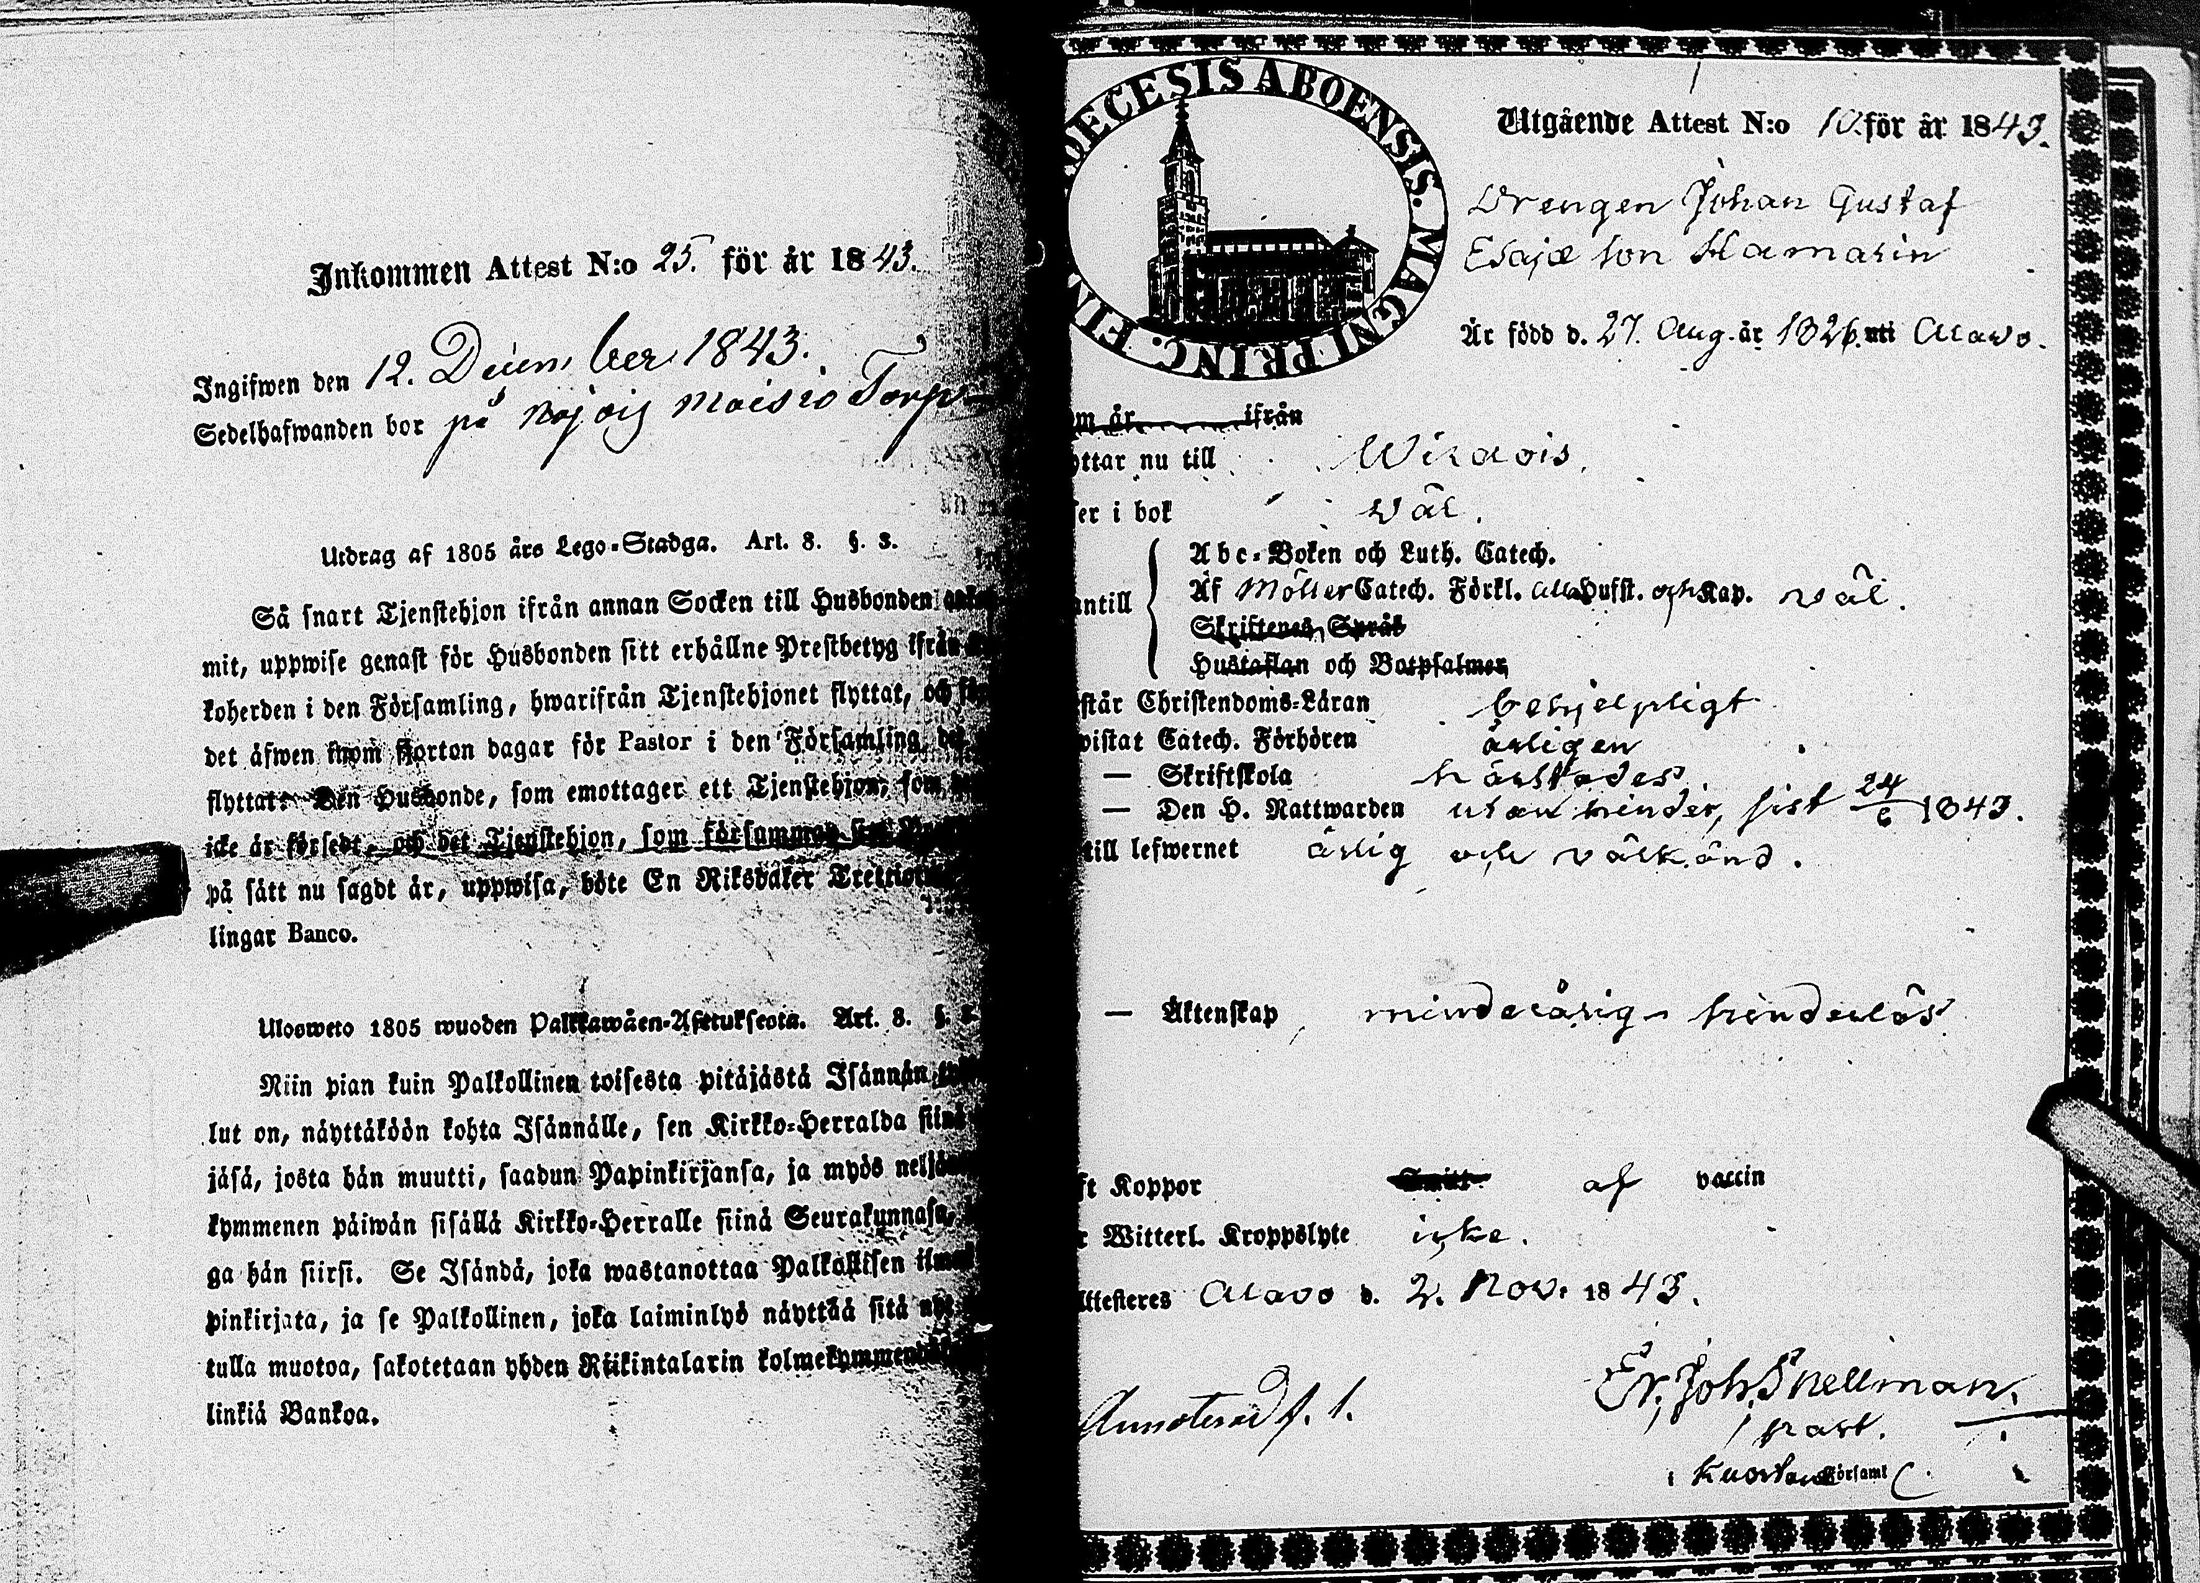 Inkommen Attest N:o 25. för år 1843.
Ingifwen den 12. December 1843.
Sedelhafwanden bor på moisio Torp
Utdrag af 1805 års Lego-Stadga. Art. 8. §. 3.
Så snart Tjenstehjon ifrån annan Socken till Husbonden
mit, uppwise genast för Husbonden sitt erhållne Prestbetyg ifrån
koherden i den Församling, hwarifrån Tjenstehjonet flyttat, och
det äfwen inom fjorton dagar för Pastor i den Församling,
flyttat. Den Husbonde, som emottager ett Tjenstehjon, som
icke är försedt, och det Tjenstehjon, som försummar
på sätt nu sagdt är, uppwisa, böte En Riksdaler
lingar Banco.
Ulosweto 1805 wuoden Palkkawäen-Asetuksesta. Art. 8. §.
Niin pian kuin Palkollinen toisesta pitäjästä Isännän
lut on, näyttäköön kohta Isännälle, sen Kirkko-Herralda
jäsä, josta hän muutti, saadun Papinkirjansa, ja myös
kymmenen päiwän sisällä Kirkko-Herralle siinä Seurakunnasa,
ga hän siirsi. Se Isändä, joka wastanottaa Palkollisen
pinkirjata, ja se Palkollinen, joka laiminlyö näyttää sitä
tulla muotoa, sakotetaan yhden Riikintalarin
linkiä Bankoa.
DIOECESIS ABOENSIS. MAGNI PRINC. FIN
Utgående Attest N:o 10. för år 1843.
Drengen Johan Gustaf
Esaiæ son Hamarin
Är född d. 27. Aug. år 1826. uti Alavo.
om år ifrån
ottar nu till Wirdois.
ser i bok väl.
antill
Abc-Boken och Luth. Catech.
Af Möller Catech. Förkl. alla Hufst. och Kap. väl.
Skriftenes Språk
Hustaflan och Botpsalmer
står Christendoms-Läran behjelpligt
vistat Catech. Förhören årligen
— Skriftskola härstädes
— Den H. Nattwarden utan hinder, sist 24/6 1843.
till lefwernet ärlig och välkänd.
— Äktenskap minderårig - hinderlös
ft Koppor af vaccin
r Witterl. Kroppslyte icke.
Attesteres Alavo d. 2. Nov. 1843.
Er. Joh. Snellman.
Annoterad f. 1.
past.
Kuortane Församl.